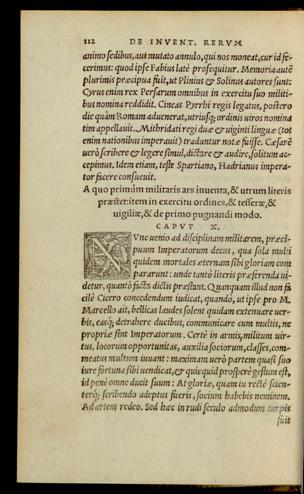 112 DE INVENT. RERVM
animo sedibus, aut mutato annulo, qui nos moneat, cur id fe-
cerimus: quod ipse Fabius latè prosequitur. Memoria autē
plurimis præcipua fuit, ut Plinius & Solinus autores sunt:
Cyrus enim rex Persarum omnibus in exercitu suo militi-
bus nomina reddidit. Cineas Pyrrhi regis legatus, postero
die quàm Romam aduenerat, utriusq; ordinis uiros nomina
tim appellauit. Mithridati regi duæ & uiginti linguæ (tot
enim nationibus imperauit) traduntur notæ fuisse. Cæsarē
uerò scribere & legere simul, dictare & audire, solitum ac-
cepimus. Idem etiam, teste Spartiano, Hadrianus impera-
tor facere consueuit.
A quo primùm militaris ars inuenta, & utrum literis
præstet: item in exercitu ordines, & tesseræ, &
uigiliæ, & de primo pugnandi modo.
CAPVT X.
NVnc uenio ad disciplinam militarem, præci-
puum Imperatorum decus, qua sola multi
quidem mortales æternam sibi gloriam com
pararunt: unde tantò literis præferenda ui-
detur, quantò facta dictis præstant. Quanquam illud non fa
cilè Cicero concedendum iudicat, quando, ut ipse pro M.
Marcello ait, bellicas laudes solent quidam extenuare uer-
bis, easq; detrahere ducibus, communicare cum multis, ne
propriæ sint Imperatorum. Certè in armis, militum uir-
tus, locorum opportunitas, auxilia sociorum, classes, com-
meatus multum iuuant: maximam uerò partem quasi suo
iure fortuna sibi uendicat, & quicquid prosperè gestum est,
id penè omne ducit suum: At gloriæ, quam tu rectè scien-
terq; scribendo adeptus fueris, socium habebis neminem.
Ad artem redeo. Sed hæc in rudi seculo admodum turpis
fuit